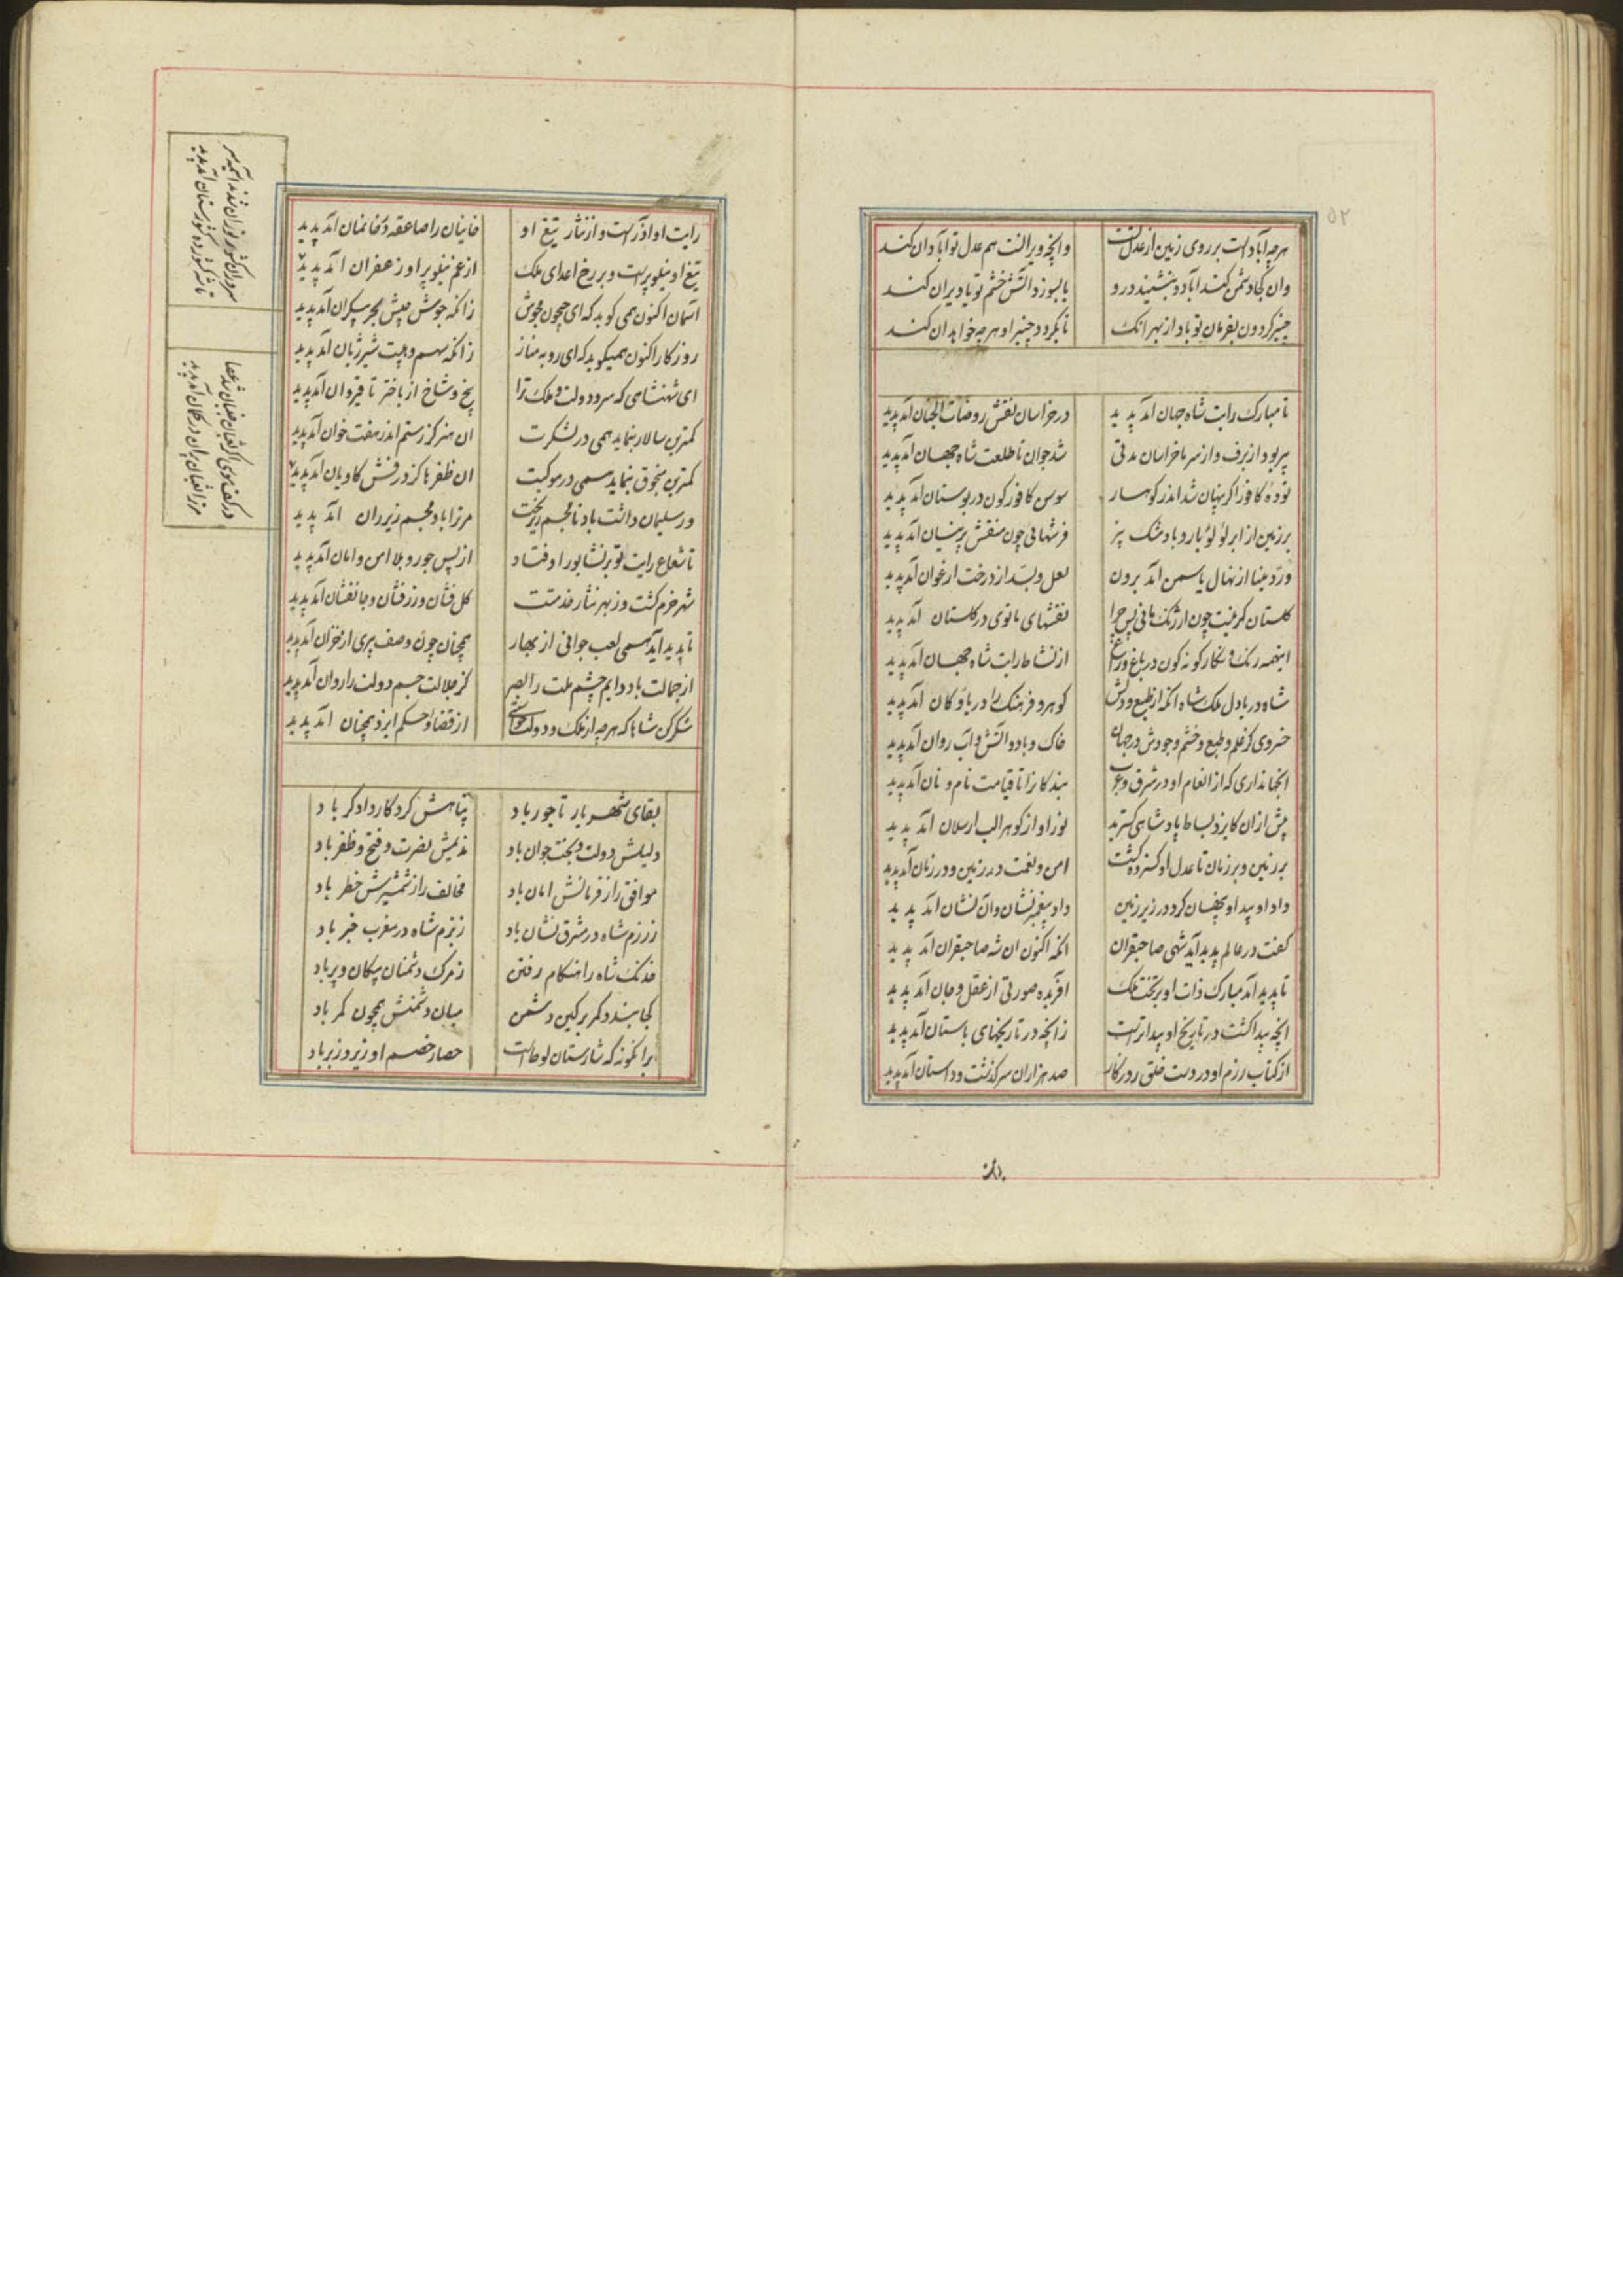 ۵۲
هرچه آباد است بر روی زمین از عدل تست وانچه ویرانست هم عدل تو آبادان کند
وان کجا دشمن کند آباد و بنشیند درو یا بسوزد آتش خشم تو یا ویران کند
چنبر گردون بفرمان تو باد از بهر انک تا بگردد چنبر او هرچه خواهد ان کند
تا مبارک رایت شاه جهان آمد پدید در خراسان نقش روضات الجنان آمد پدید
پیر بود از برف و از سرما خراسان مدتی شد جوان تا طلعت شاه جهان آمد پدید
تودهٔ کافور اگر پنهان شد اندر کوهسار سوسن کافورگون در بوستان آمد پدید
بر زمین از ابر لؤلؤ بار و باد مشک بیز فرشهائی چون منقش پرنیان آمد پدید
ور د مینا از نهال یاسمن آمد برون لعل و بسد از درخت ارغوان آمد پدید
گلستان گر نیست چون ارژنگ مانی پس چرا نقشهای مانوی در گلستان آمد پدید
اینهمه رنگ و نگار گونه گون در باغ و راغ از نشاط رایت شاه جهان آمد پدید
شاه دریا دل ملک شاه انکه از طبع و دلش گوهر و فرهنگ را دریا و کان آمد پدید
خسروی کز علم و طبع و خشم و جودش در جهان خاک و باد و آتش و آب روان آمد پدید
انجهانداری که از انعام او در شرق و غرب بندکانرا تا قیامت نام و نان آمد پدید
پیش ازان کایزد بساط پادشاهی گسترید نور او از گوهر الب ارسلان آمد پدید
بر زمین و بر زمان تا عدل او گسترده گشت امن و نعمت در زمین و در زمان آمد پدید
داد او بیداد پنهان کرد در زیر زمین داد پیغمبر نشان وان نشان آمد پدید
گفت در عالم پدید آید شهی صاحبقران انکه اکنون ان شه صاحبقران آمد پدید
تا پدید آمد مبارک ذات او بر تخت ملک آفریده صورتی از عقل و جان آمد پدید
انچه پیدا گشت در تاریخ او پیداتر است زانچه در تاریخهای باستان آمد پدید
از کتاب رزم او در دست خلق روزگار صد هزاران سرگذشت و داستان آمد پدید
رایت او آذر است و از شار تیغ او خانیان را صاعقه در خانمان آمد پدید
تیغ او نیلوپر است و بر رخ اعدای ملک از غم نیلوپر او زعفران آمد پدید
آسمان اکنون همی گوید که ای جیحون مجوش زانکه جوش جیش بحر بیکران آمد پدید
روزگار اکنون همیگوید که ای روبه مناز زانکه سهم و هیبت شیر ژیان آمد پدید
ای شهنشاهی که سرو دولت و ملک ترا بیخ و شاخ از باختر تا قیروان آمد پدید
کمترین سالار بنماید همی در لشکرت ان هنر کز رستم اندر هفت خوان آمد پدید
کمترین منجوق بنماید همی در موکبت ان ظفرها کز درفش کاویان آمد پدید
ور سلیمان داشت باد نامجسم زیر تخت مر ترا باد مجسم زیر ران آمد پدید
تا شعاع رایت تو بر نشابور اوفتاد از پس جور و بلا امن و امان آمد پدید
شهر خرم گشت وز بهر نثار خدمتت گل فشان و زرفشان و جانفشان آمد پدید
تا پدید آید همی لعب جوانی از بهار همچنان چون وصف پیری از خزان آمد پدید
از جمالت باد دایم چشم ملت را بصر کز جلالت جسم دولت را روان آمد پدید
شکر کن شاها که هرچه از ملک و دولت خواستی از قضا و حکم ایزد همچنان آمد پدید
بقای شهریار تاجور باد پناهش کردگار دادگر باد
دلیلش دولت و بخت جوان باد ندیمش نصرت و فتح و ظفر باد
موافق را ز فرمانش امان باد مخالف را ز شمشیرش خطر باد
ز رزم شاه در مشرق نشان باد ز بزم شاه در مغرب خبر باد
خدنک شاه را هنگام رفتن ز مرگ دشمنان پیکان و پر باد
کجا بندد کمر بر کین دشمن میان دشمنش همچون کمر باد
برانگونه که شارستان لوط است حصار خصم او زیر و زبر باد
سروران کشور توران شدند آسیمه سر
تا شه کشورده کشورستان آمد پدید
در کف موسی اگر ثعبان پنهان شد عصا
مر ترا ثعبان پران در کمان آمد پدید